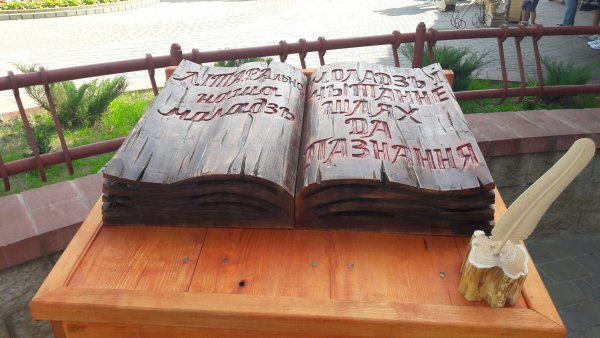 Літаральна
наша
моладзь
МОЛАДЗЬ І
ЧЫТАННЕ
ШЛЯХ
ДА
ПАЗНАННЯ